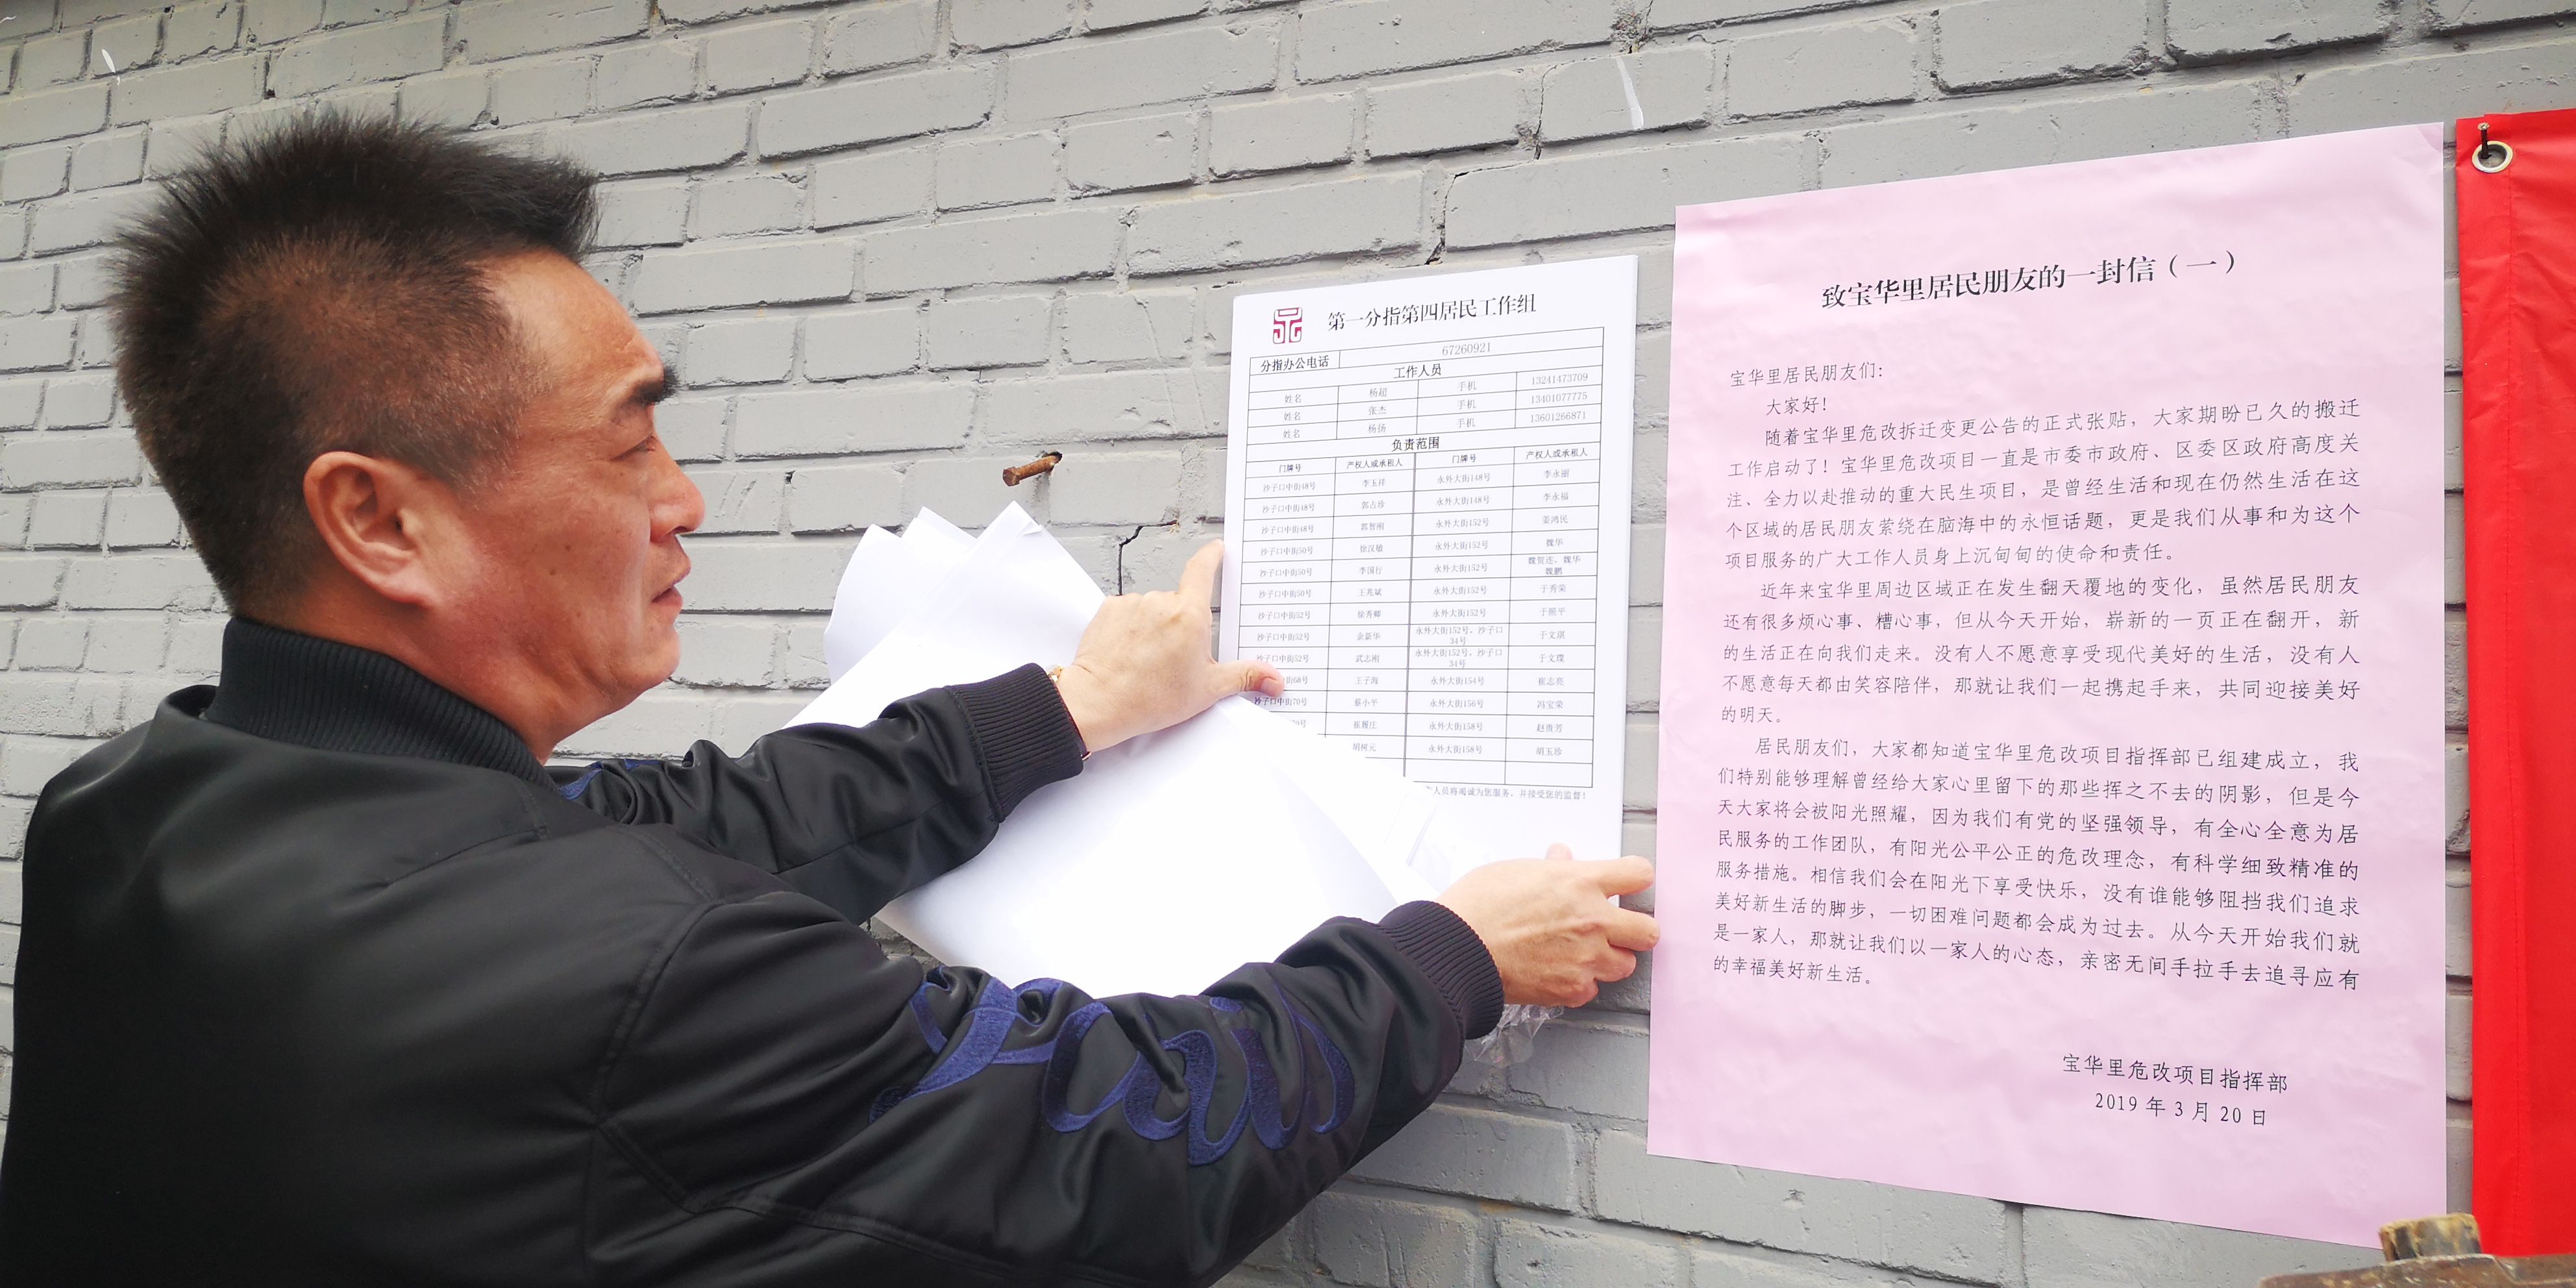 第一分指第四居民工作组
分指办公电话 67260921
工作人员
姓名 杨超 手机 13241473709
姓名 张杰 手机 13401077775
姓名 杨扬 手机 13601266871
负责范围
门牌号 产权人或承租人 门牌号 产权人或承租人
沙子口中街48号 李玉祥 永外大街148号 李永丽
沙子口中街48号 郭占珍 永外大街148号 李永福
沙子口中街48号 郭智刚 永外大街152号 姜鸿民
沙子口中街50号 徐汉敏 永外大街152号 魏华
沙子口中街50号 李国行 永外大街152号 魏贺连、魏华
魏鹏
沙子口中街50号 王兆斌 永外大街152号 于秀荣
沙子口中街52号 徐秀卿 永外大街152号 于照平
沙子口中街52号 金新华 永外大街152号、沙子口34号 于文淇
沙子口中街52号 武志刚 永外大街152号、沙子口34号 于文璞
街68号 王子海 永外大街154号 崔志亮
沙子口中街70号 蔡小平 永外大街156号 冯宝荣
70号 崔履庄 永外大街158号 赵贵芳
胡树元 永外大街158号 胡玉珍
人员将竭诚为您服务，并接受您的监督！
致宝华里居民朋友的一封信（一）
宝华里居民朋友们：
大家好！
随着宝华里危改拆迁变更公告的正式张贴，大家期盼已久的搬迁
工作启动了！宝华里危改项目一直是市委市政府、区委区政府高度关
注、全力以赴推动的重大民生项目，是曾经生活和现在仍然生活在这
个区域的居民朋友萦绕在脑海中的永恒话题，更是我们从事和为这个
项目服务的广大工作人员身上沉甸甸的使命和责任。
近年来宝华里周边区域正在发生翻天覆地的变化，虽然居民朋友
还有很多烦心事、糟心事，但从今天开始，崭新的一页正在翻开，新
的生活正在向我们走来。没有人不愿意享受现代美好的生活，没有人
不愿意每天都由笑容陪伴，那就让我们一起携起手来，共同迎接美好
的明天。
居民朋友们，大家都知道宝华里危改项目指挥部已组建成立，我
们特别能够理解曾经给大家心里留下的那些挥之不去的阴影，但是今
天大家将会被阳光照耀，因为我们有党的坚强领导，有全心全意为居
民服务的工作团队，有阳光公平公正的危改理念，有科学细致精准的
服务措施。相信我们会在阳光下享受快乐，没有谁能够阻挡我们追求
美好新生活的脚步，一切困难问题都会成为过去。从今天开始我们就
是一家人，那就让我们以一家人的心态，亲密无间手拉手去追寻应有
的幸福美好新生活。
宝华里危改项目指挥部
2019年3月20日